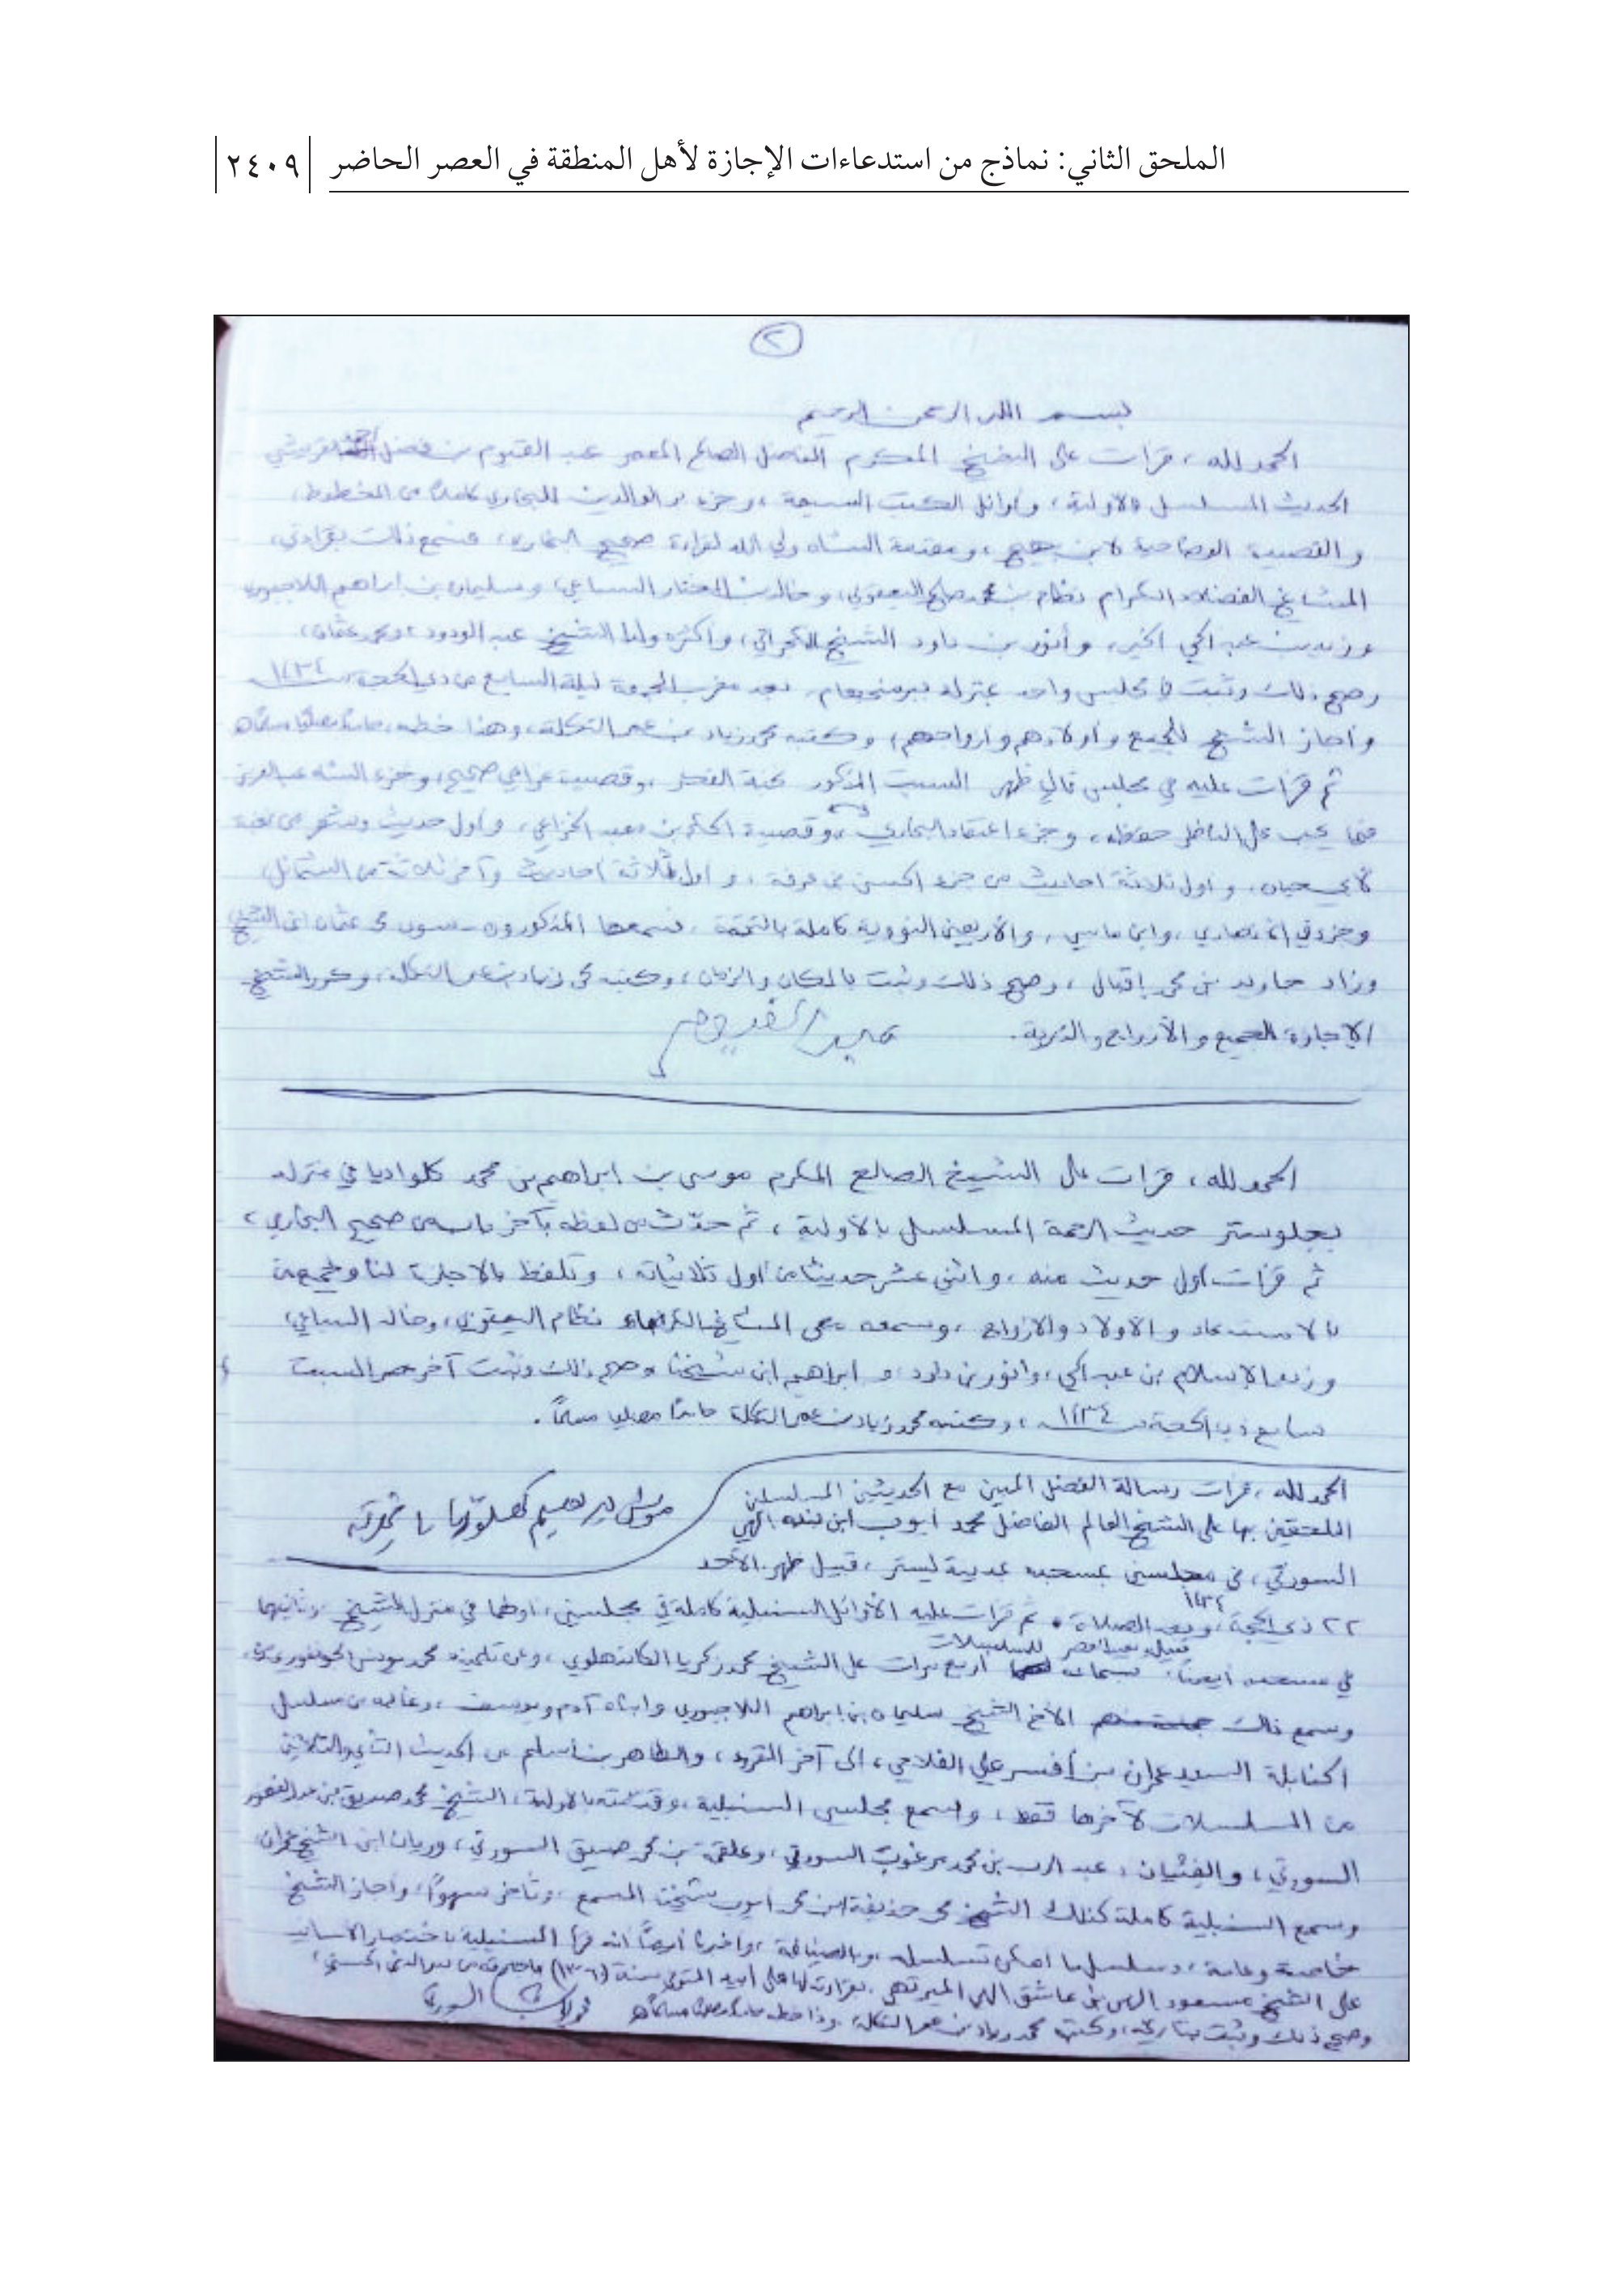 الملحق الثاني: نماذج من استدعاءات الإجازة لأهل المنطقة في العصر الحاضر ٢٤٠٩
٢
بسم الله الرحمن الرحيم
الحمد لله، قرأت على الشيخ المكرم الفاضل الصالح المعمر عبد القيوم بن فضل القريشي
الحديث المسلسل بالأولية، وأوائل الكتب السبعة، وجزء بر الوالدين للبخاري كاملا من المخطوط،
والقصيدة الوضاحية لابن بهيج، ومقدمة الشاه ولي الله لقراءة صحيح البخاري، فسمع ذلك بقراءتي،
المشايخ الفضلاء الكرام نظام بن محمد صالح اليعقوبي، وخالد بن المختار السباعي، وسليمان بن إبراهيم اللاجبوري
وزيد بن عبد الحي الخير، وأنور بن داود الشيخ الكجراتي، وأكثره ولدا الشيخ عبد الودود ومحمد عثمان،
وصح ذلك وثبت في مجلس واحد بمنزله ببرمنجهام، بعد مغرب الجمعة ليلة السابع من ذي الحجة سنة ١٤٣٤
وأجاز الشيخ للجميع وأولادهم وأزواجهم، وكتبه محمد زياد بن عمر التكلة، وهذا خطه، حامدا مصليا مسلما
ثم قرأت عليه في مجلس تالي ظهر السبت المذكور نخبة الفكر، وقصيدة غرامي صحيح، وجزء الشاه عبد العزيز
فيما يجب على الناظر حفظه، وجزء اعتقاد البخاري، وقصيدة الحكم بن معبد الخزاعي، وأول حديث وشعر من
لأبي حيان، وأول ثلاثة أحاديث من جزء الحسن بن عرفة، وأول ثلاثة أحاديث وآخر ثلاثة من الشمائل،
وجزء في الأنصاري، وابن ماسي، والأربعين النووية كاملة بالتتمة، فسمعها المذكورون سوى محمد عثمان ابن الشيخ
وزاد جاويد بن محمد إقبال، وصح ذلك وثبت بالمكان والزمان، وكتبه محمد زياد بن عمر التكلة، وكرر الشيخ
الإجازة للجميع والأزواج والذرية.
عبد القيوم
الحمد لله، قرأت على الشيخ الصالح المكرم موسى بن إبراهيم بن محمد كلواديا في منزله
بجلوستر حديث الرحمة المسلسل بالأولية، ثم حدّث من لفظه بآخر باب من صحيح البخاري،
ثم قرأت أول حديث منه، واثني عشر حديثا من أول ثلاثياته، وتلفظ بالإجازة لنا ولجميع من
بالاستدعاء والأولاد والأزواج، وسمعه معي المشايخ نظام اليعقوبي، وخالد السباعي،
وزيد الإسلام بن عبد الحي، وأنور بن داود، وإبراهيم ابن شيخنا، وصح ذلك وثبت آخر عصر السبت
سابع ذي الحجة سنة ١٤٣٤، وكتبه محمد زياد بن عمر التكلة حامدًا مصليا مسلمًا.
الحمد لله، قرأت رسالة الفضل المبين مع الحديثين المسلسلين
الملحقين بها على الشيخ العالم الفاضل محمد أيوب ابن بنده إلهي
السورتي، في مجلسين بمسجده بمدينة ليستر، قبيل ظهر الأحد
٢٢ ذي الحجة ١٤٣٤، وبعد الصلاة، ثم قرأت عليه الأوائل السنبلية كاملة في مجلسين، أولهما في منزل الشيخ، وثانيهما
قبيل وبعد العصر
في مسجده أيضا، بسماعه للمسلسلات أربع مرات على الشيخ محمد زكريا الكاندهلوي، وعن تلميذه محمد يونس الجونفوري
وسمع ذلك الأخ الشيخ سليمان بن إبراهيم اللاجبوري وابناه آدم ويوسف، وغالبه من مسلسل
الحنابلة السيد عمران بن أفسر علي الفلاحي، إلى آخر المقروء، والطاهر بن أسلم من الحديث الثاني والثلاثين
من المسلسلات لآخرها فقط، وسمع مجلسي السنبلية، الشيخ محمد صديق بن عبد الغفور
السورتي، والفتيان: عبد الرب بن محمد مرغوب السورتي، وعلقمة بن محمد صديق السورتي، وريان ابن الشيخ عمران،
وسمع السنبلية كاملة كذلك الشيخ محمد حذيفة ابن محمد أيوب شيخنا المسمع، وتأخر سهوًا، وأجاز الشيخ
خاصة وعامة، وسلسل ما أمكن تسلسله، وبالضيافة، وأخبرنا أيضًا أنه قرأ السنبلية باختصار الأسانيد
على الشيخ مسعود إلهي بن عاشق إلهي الميرتهي، بقراءته لها على أبيه المتوفى سنة (١٣٦٠)
وصح ذلك وثبت بتاريخه، وكتبه محمد زياد بن عمر التكلة، وذا خطه حامدا مصليا مسلما